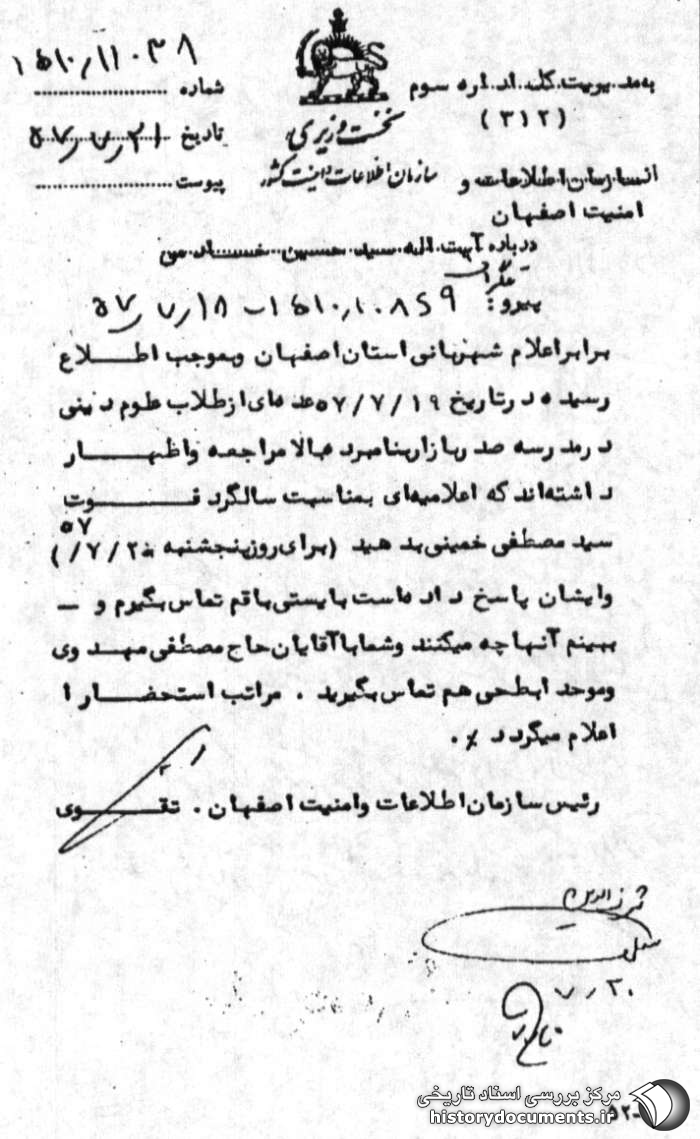 به مدیریت کل اداره سوم
(۳۱۲)
نخست وزیری
سازمان اطلاعات و امنیت کشور
شماره ۱۵۱۰/۱۱۰۳۸
تاریخ ۵۷/۷/۲۱
پیوست
از سازمان اطلاعات و
امنیت اصفهان
درباره آیت اله سید حسین خادمی
تلگراف
پیرو: ۱۵۱۰/۱۰۸۵۹ - ۵۷/۷/۱۸
برابر اعلام شهربانی استان اصفهان و بموجب اطلاع
رسیده در تاریخ ۵۷/۷/۱۹ عده ای از طلاب علوم دینی
در مدرسه صدر بازار بنامبرده بالا مراجعه و اظهار
داشته اند که اعلامیه ای بمناسبت سالگرد فوت
۵۷
سید مصطفی خمینی بدهید (برای روز پنجشنبه ۲۰ /۷/)
و ایشان پاسخ داده است بایستی با قم تماس بگیرم و —
ببینم آنها چه میکنند و شما با آقایان حاج مصطفی مهدوی
و موحد ابطحی هم تماس بگیرید . مراتب استحضارا
اعلام میگردد ٪.
رئیس سازمان اطلاعات و امنیت اصفهان . تقوی
۷/۳۰
مرکز بررسی اسناد تاریخی
historydocuments.ir